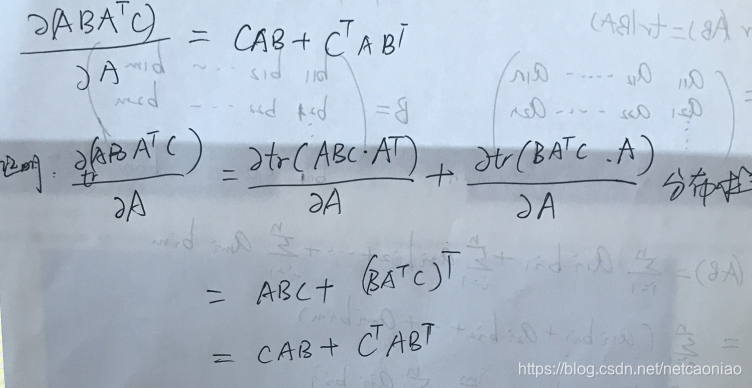 ∂(ABAᵀC)/∂A = CAB + CᵀABᵀ
证明: ∂tr(ABAᵀC)/∂A = ∂tr(ABC·Aᵀ)/∂A + ∂tr(BAᵀC·A)/∂A
= ABC + (BAᵀC)ᵀ
= CAB + CᵀABᵀ
https://blog.csdn.net/netcaoniao